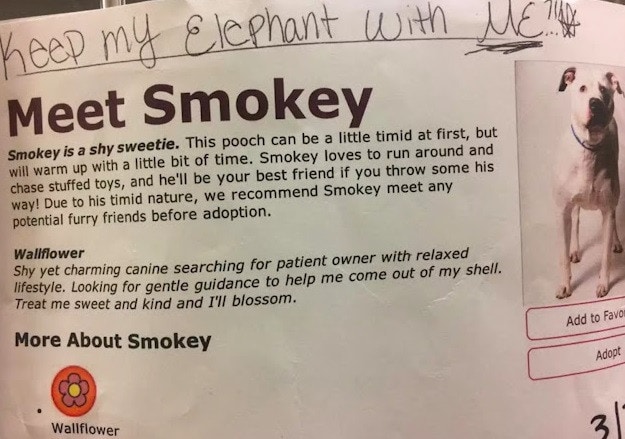 Keep my Elephant with ME!!!
Meet Smokey
Smokey is a shy sweetie. This pooch can be a little timid at first, but
will warm up with a little bit of time. Smokey loves to run around and
chase stuffed toys, and he'll be your best friend if you throw some his
way! Due to his timid nature, we recommend Smokey meet any
potential furry friends before adoption.
Wallflower
Shy yet charming canine searching for patient owner with relaxed
lifestyle. Looking for gentle guidance to help me come out of my shell.
Treat me sweet and kind and I'll blossom.
More About Smokey
Wallflower
Add to Favo
Adopt
3/